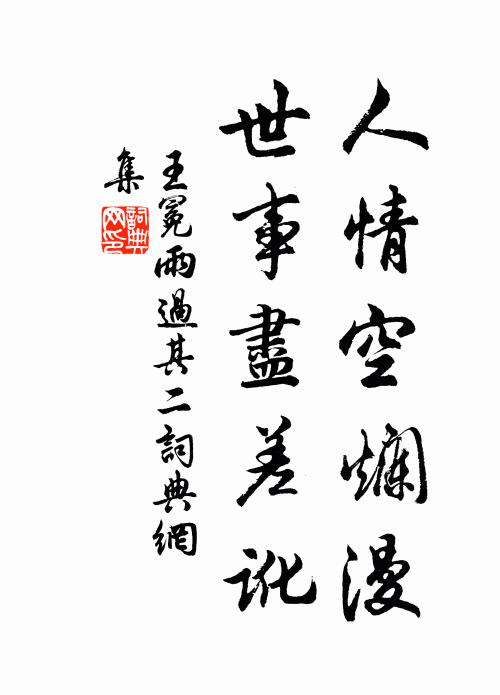 人情空爛漫
世事盡差訛
王冕雨過其二詞典網
集
詞典网印